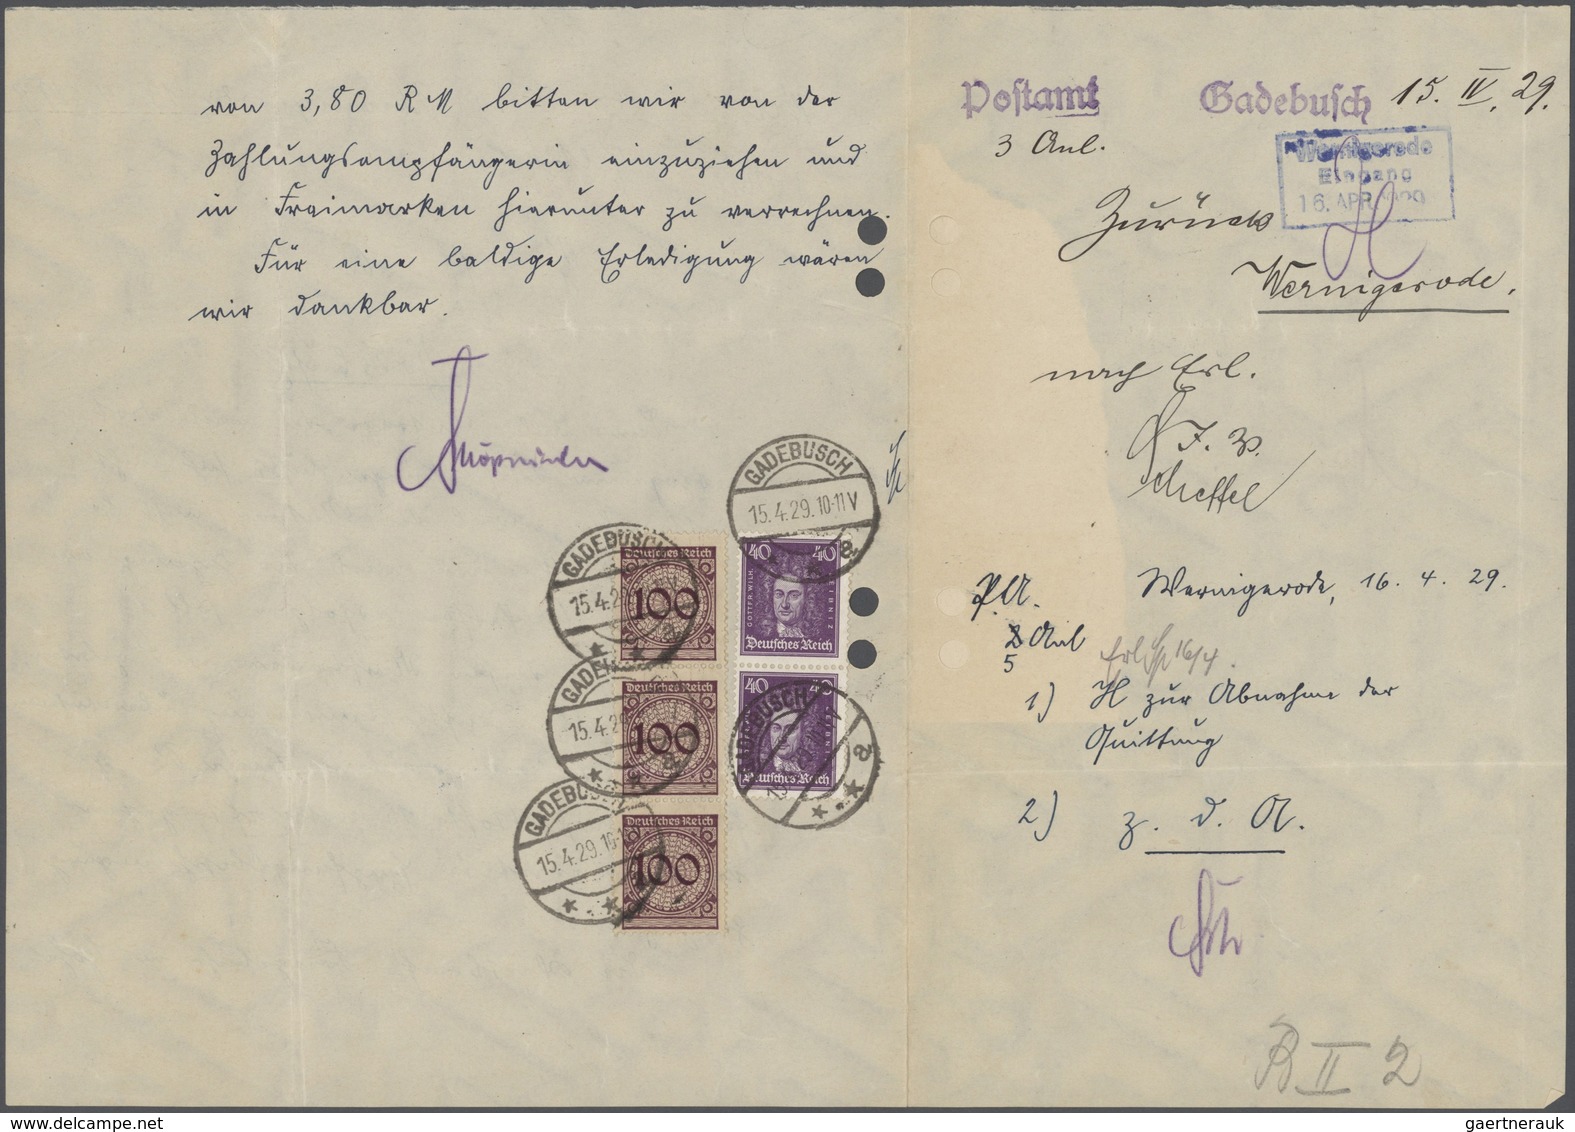 von 3,80 RM bitten wir von der
Zahlungsempfängerin einzuziehen und
in Freimarken hierunter zu verrechnen.
Für eine baldige Erledigung wären
wir dankbar.
GADEBUSCH
15.4.29.10-11V
a
GADEBUSCH
15.4.2
a
GADEB
15.4.29
a
GADEBUSCH
15.4.29.10-1
GADEBUSCH
a
Deutsches Reich
100
Deutsches Reich
100
Deutsches Reich
100
40 40
GOTTFR. WILH. LEIBNIZ
Deutsches Reich
40 40
LEIBNIZ
Deutsches Reich
Postamt Gadebusch 15. IV. 29.
3 Anl.
Wernigerode
Eingang
16. APR. 1929
Zurück
Wernigerode.
nach Erl.
J. V.
Scheffel
P.A. Wernigerode, 16. 4. 29.
5 Anl
Erl. 16/4.
1) H zur Abnahme der
Quittung
2) z. d. A.
B II 2
gaertnerauk